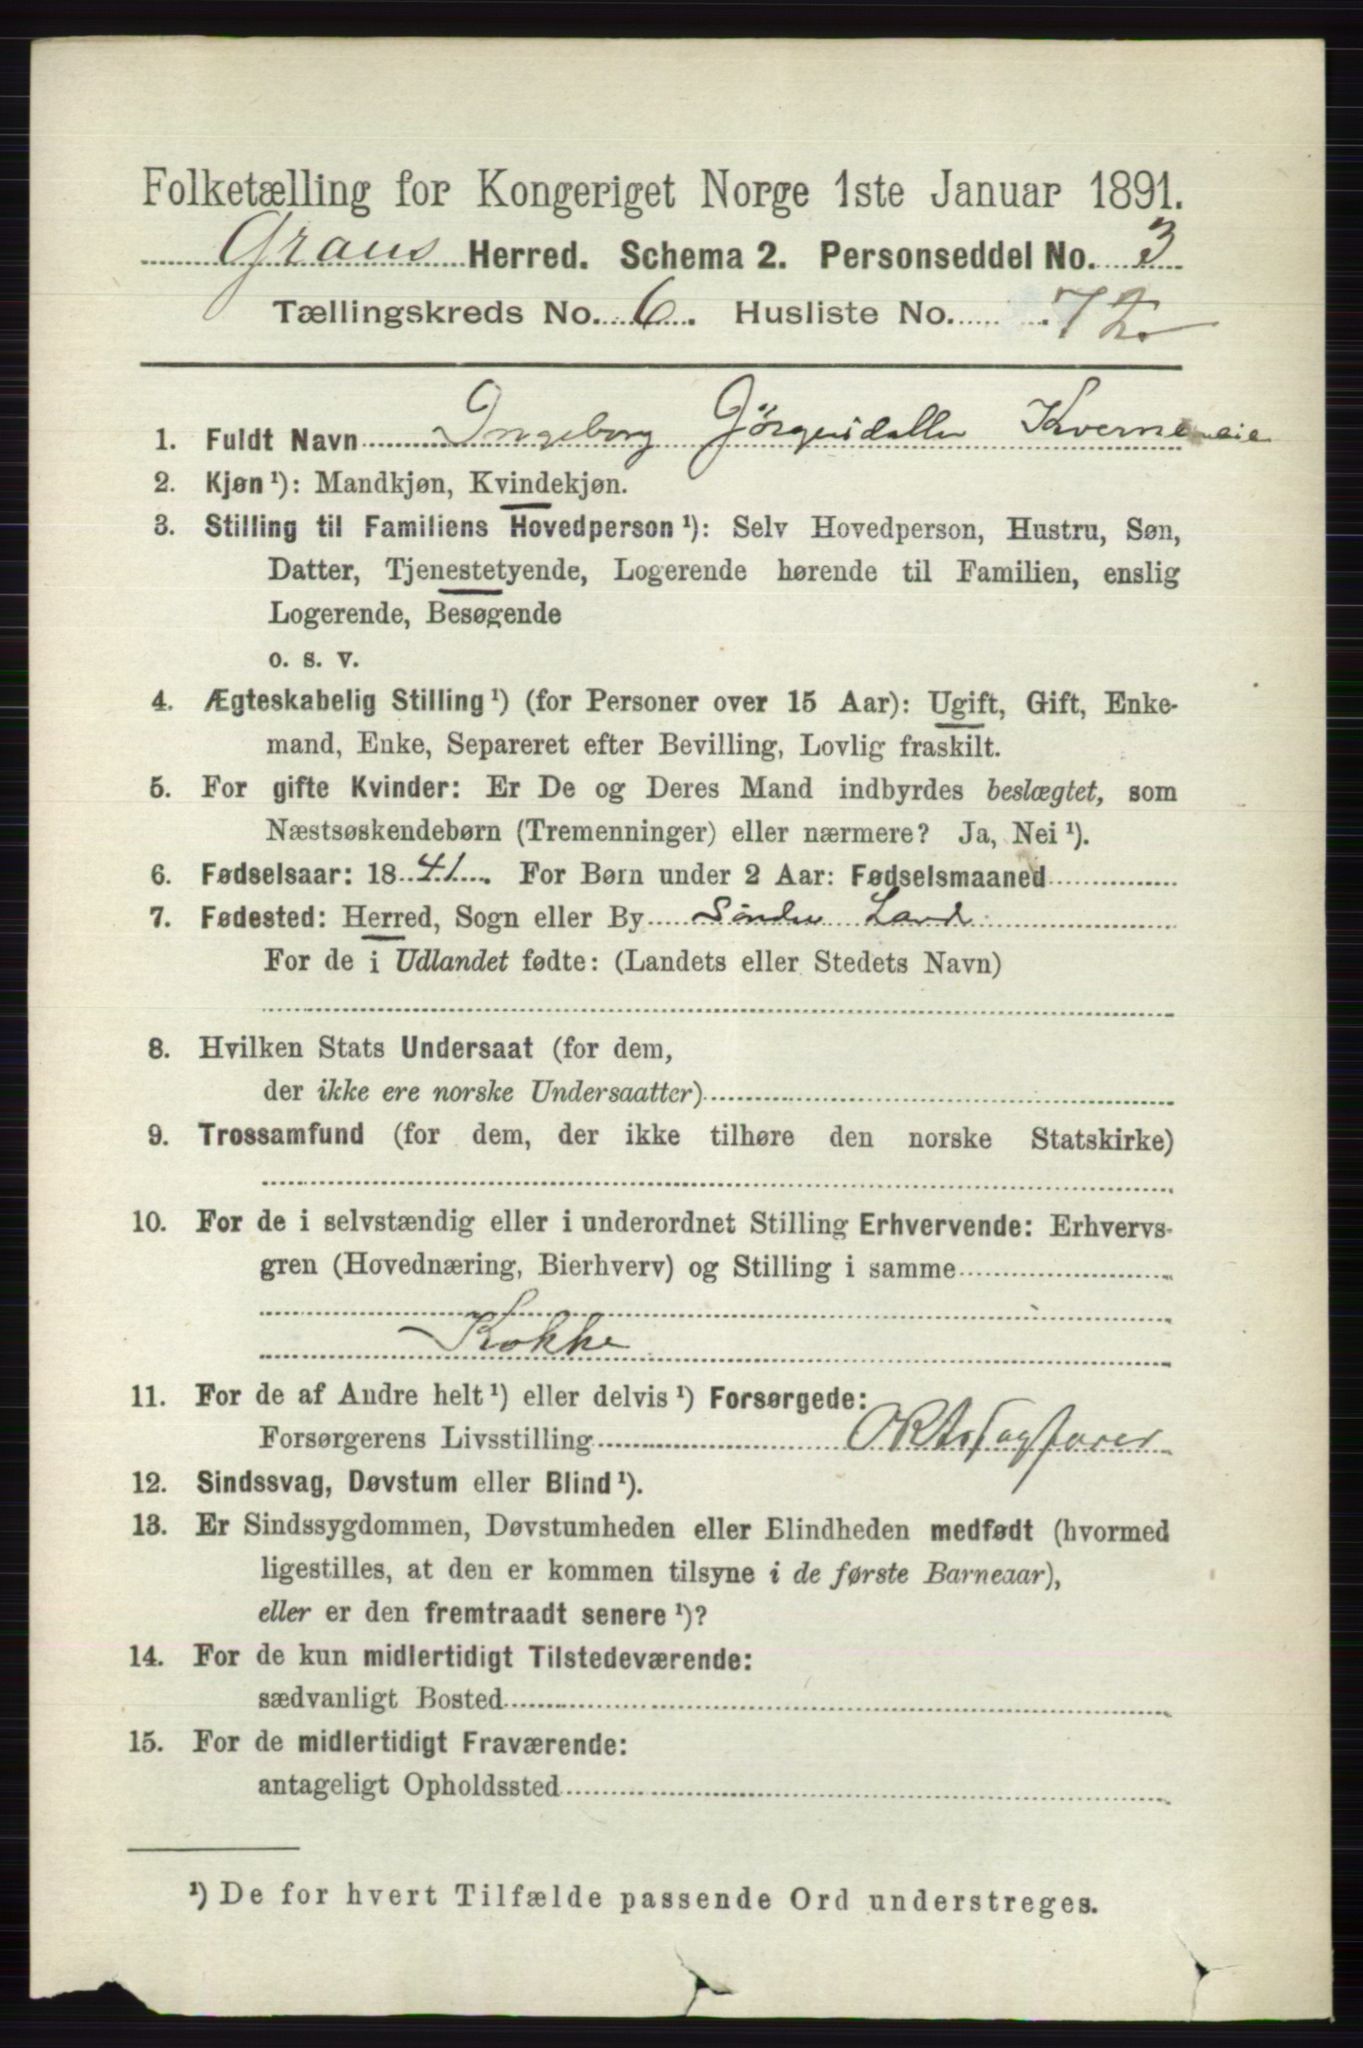 Folketælling for Kongeriget Norge 1ste Januar 1891.
Grans Herred. Schema 2. Personseddel No. 3
Tællingskreds No. 6. Husliste No. 72
1. Fuldt Navn Ingeborg Jörgensdatter
2. Kjøn¹): Mandkjøn, Kvindekjøn.
3. Stilling til Familiens Hovedperson¹): Selv Hovedperson, Hustru, Søn,
Datter, Tjenestetyende, Logerende hørende til Familien, enslig
Logerende, Besøgende
o. s. v.
4. Ægteskabelig Stilling¹) (for Personer over 15 Aar): Ugift, Gift, Enke-
mand, Enke, Separeret efter Bevilling, Lovlig fraskilt.
5. For gifte Kvinder: Er De og Deres Mand indbyrdes beslægtet, som
Næstsøskendebørn (Tremenninger) eller nærmere? Ja, Nei¹).
6. Fødselsaar: 1841. For Børn under 2 Aar: Fødselsmaaned
7. Fødested: Herred, Sogn eller By Söndre Land
For de i Udlandet fødte: (Landets eller Stedets Navn)
8. Hvilken Stats Undersaat (for dem,
der ikke ere norske Undersaatter)
9. Trossamfund (for dem, der ikke tilhøre den norske Statskirke)
10. For de i selvstændig eller i underordnet Stilling Erhvervende: Erhvervs-
gren (Hovednæring, Bierhverv) og Stilling i samme
Kokke
11. For de af Andre helt¹) eller delvis¹) Forsørgede:
Forsørgerens Livsstilling
12. Sindssvag, Døvstum eller Blind¹).
13. Er Sindssygdommen, Døvstumheden eller Blindheden medfødt (hvormed
ligestilles, at den er kommen tilsyne i de første Barneaar),
eller er den fremtraadt senere¹)?
14. For de kun midlertidigt Tilstedeværende:
sædvanligt Bosted
15. For de midlertidigt Fraværende:
antageligt Opholdssted
¹) De for hvert Tilfælde passende Ord understreges.